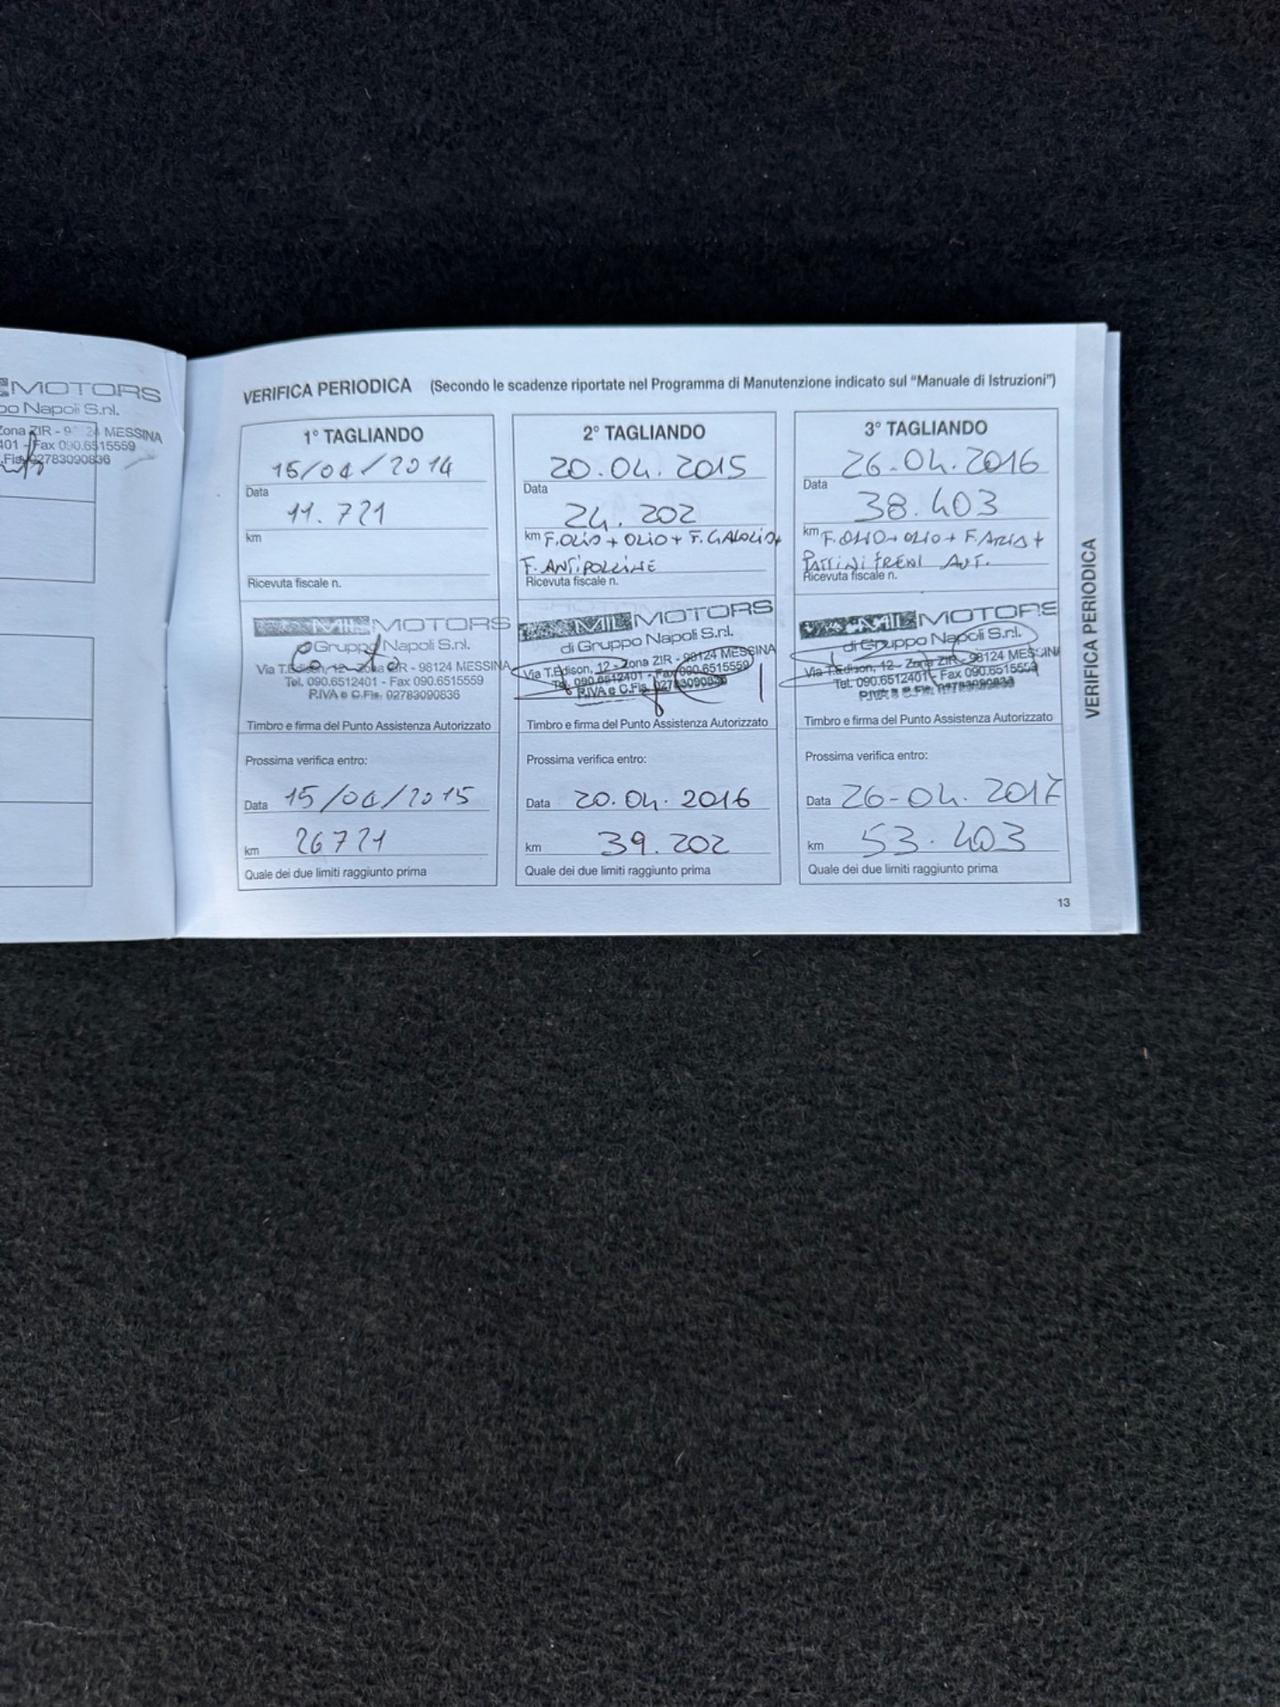 MOTORS
po Napoli S.r.l.
Zona ZIR - 98124 MESSINA
401 - Fax 090.6515559
.Fis. 02783090836
VERIFICA PERIODICA (Secondo le scadenze riportate nel Programma di Manutenzione indicato sul “Manuale di Istruzioni”)
1° TAGLIANDO
15/04/2014
Data
11.721
km
Ricevuta fiscale n.
MOTORS
Gruppo Napoli S.r.l.
Via T.Edison, 12 - Zona ZIR - 98124 MESSINA
Tel. 090.6512401 - Fax 090.6515559
P.IVA e C.Fis. 02783090836
Timbro e firma del Punto Assistenza Autorizzato
Prossima verifica entro:
Data 15/04/2015
km 26721
Quale dei due limiti raggiunto prima
2° TAGLIANDO
20.04.2015
Data
24.202
km F.OLIO + OLIO + F.
F. ANTIPOLLINE
Ricevuta fiscale n.
MOTORS
di Gruppo Napoli S.r.l.
Via T.Edison, 12 - Zona ZIR - 98124 MESSINA
Tel. 090.6512401 - Fax 090.6515559
P.IVA e C.Fis. 02783090836
Timbro e firma del Punto Assistenza Autorizzato
Prossima verifica entro:
Data 20.04.2016
km 39.202
Quale dei due limiti raggiunto prima
3° TAGLIANDO
26.04.2016
Data
38.403
km F.OLIO + OLIO + F.ARIA +
FRENI ANT.
Ricevuta fiscale n.
MOTORS
di Gruppo Napoli S.r.l.
Via T.Edison, 12 - Zona ZIR - 98124 MESSINA
Tel. 090.6512401 - Fax 090.6515559
P.IVA e C.Fis. 02783090836
Timbro e firma del Punto Assistenza Autorizzato
Prossima verifica entro:
Data 26-04.2017
km 53.403
Quale dei due limiti raggiunto prima
VERIFICA PERIODICA
13